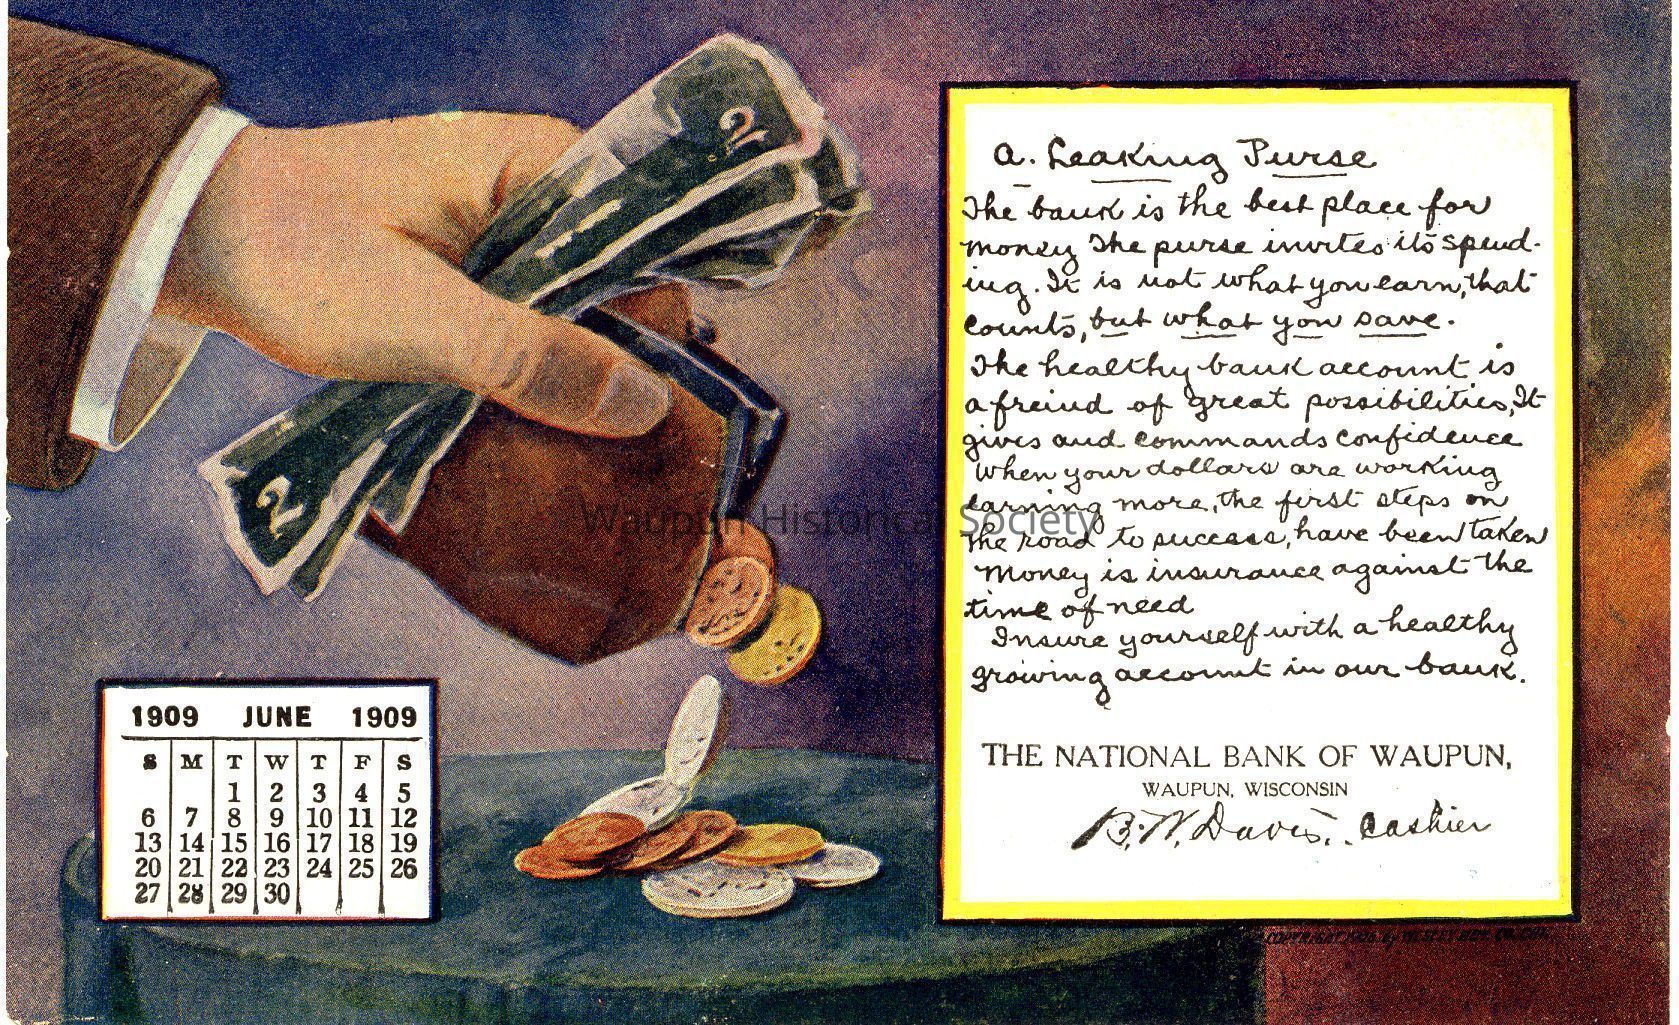 2
2
Waupun Historical Society
1909 JUNE 1909
S M T W T F S
1 2 3 4 5
6 7 8 9 10 11 12
13 14 15 16 17 18 19
20 21 22 23 24 25 26
27 28 29 30
a. Leaking Purse
The bank is the best place for
money The purse invites its spend-
ing. It is not what you earn, that
counts, but what you save.
The healthy bank account is
a freind of great possibilities, It
gives and commands confidence
When your dollars are working
earning more, the first steps on
the road to success, have been taken
Money is insurance against the
time of need
Insure yourself with a healthy
growing account in our bank.
THE NATIONAL BANK OF WAUPUN,
WAUPUN, WISCONSIN
B. W. Davis, Cashier
COPYRIGHT by